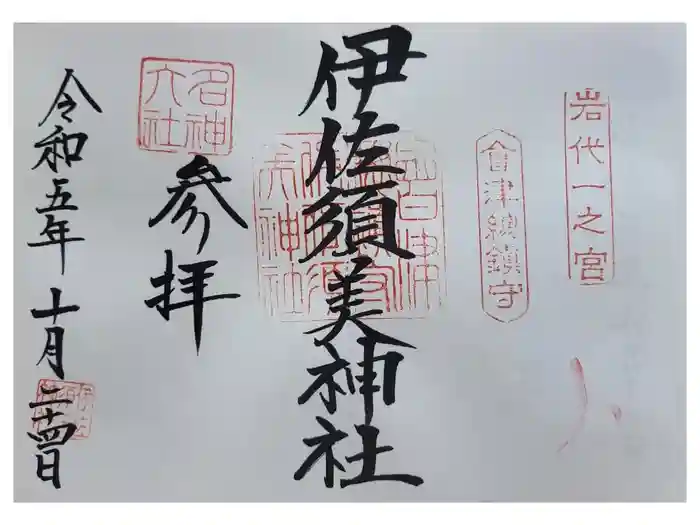 岩代一之宮
會津總鎮守
伊佐須美神社
名神大社
参拝
令和五年十月二十四日